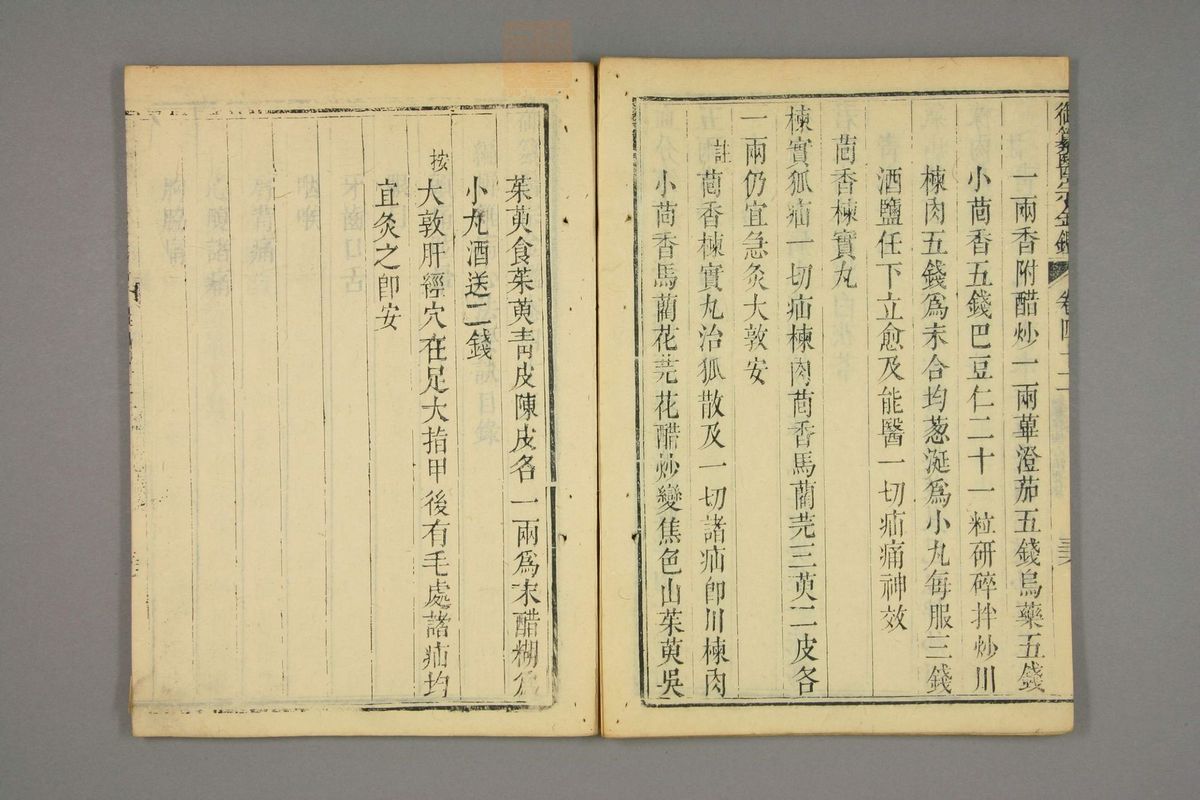 御纂醫宗金鑑 卷四二
一兩香附醋炒一兩蓽澄茄五錢烏藥五錢
小茴香五錢巴豆仁二十一粒研碎拌炒川
楝肉五錢為末合均葱涎為小丸每服三錢
酒鹽任下立愈及能醫一切疝痛神效
茴香楝實丸
楝實狐疝一切疝楝肉茴香馬藺芫三萸二皮各
一兩仍宜急灸大敦安
註
茴香楝實丸治狐散及一切諸疝即川楝肉
小茴香馬藺花芫花醋炒變焦色山茱萸吳
茱萸食茱萸青皮陳皮各一兩為末醋糊為
小丸酒送二錢
按
大敦肝經穴在足大指甲後有毛處諸疝均
宜灸之即安